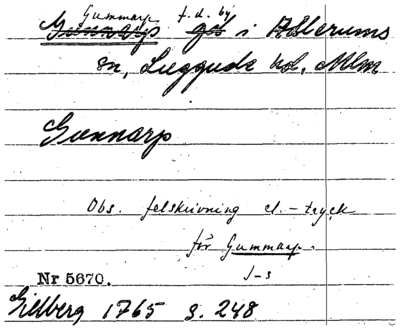 Gummarp f.d. by
Gunnarp gd i Allerums
sn, Luggude hd, Mlm
Gunnarp
Obs. felskrivning el. - tryck
för Gummarp.
J-s
Nr 5670.
Gillberg 1765 s. 248